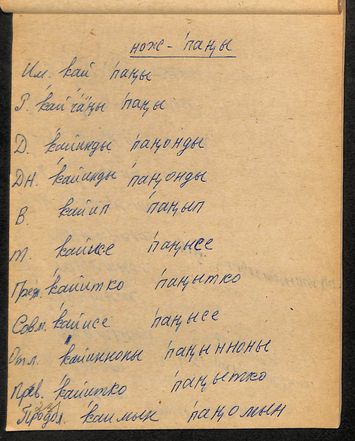 нож - паӊы
Им. кай паӊы
Р. кай паӊы
Д. кайинды паӊонды
ДН. кайинды паӊонды
В. кайип паӊып
Т. кайисе паӊысе
Пред. кайитко паӊытко
Совм. кайисе паӊысе
Отл. кайинноны паӊынноны
Прев. кайитко паӊытко
Продол. каимын паӊомын